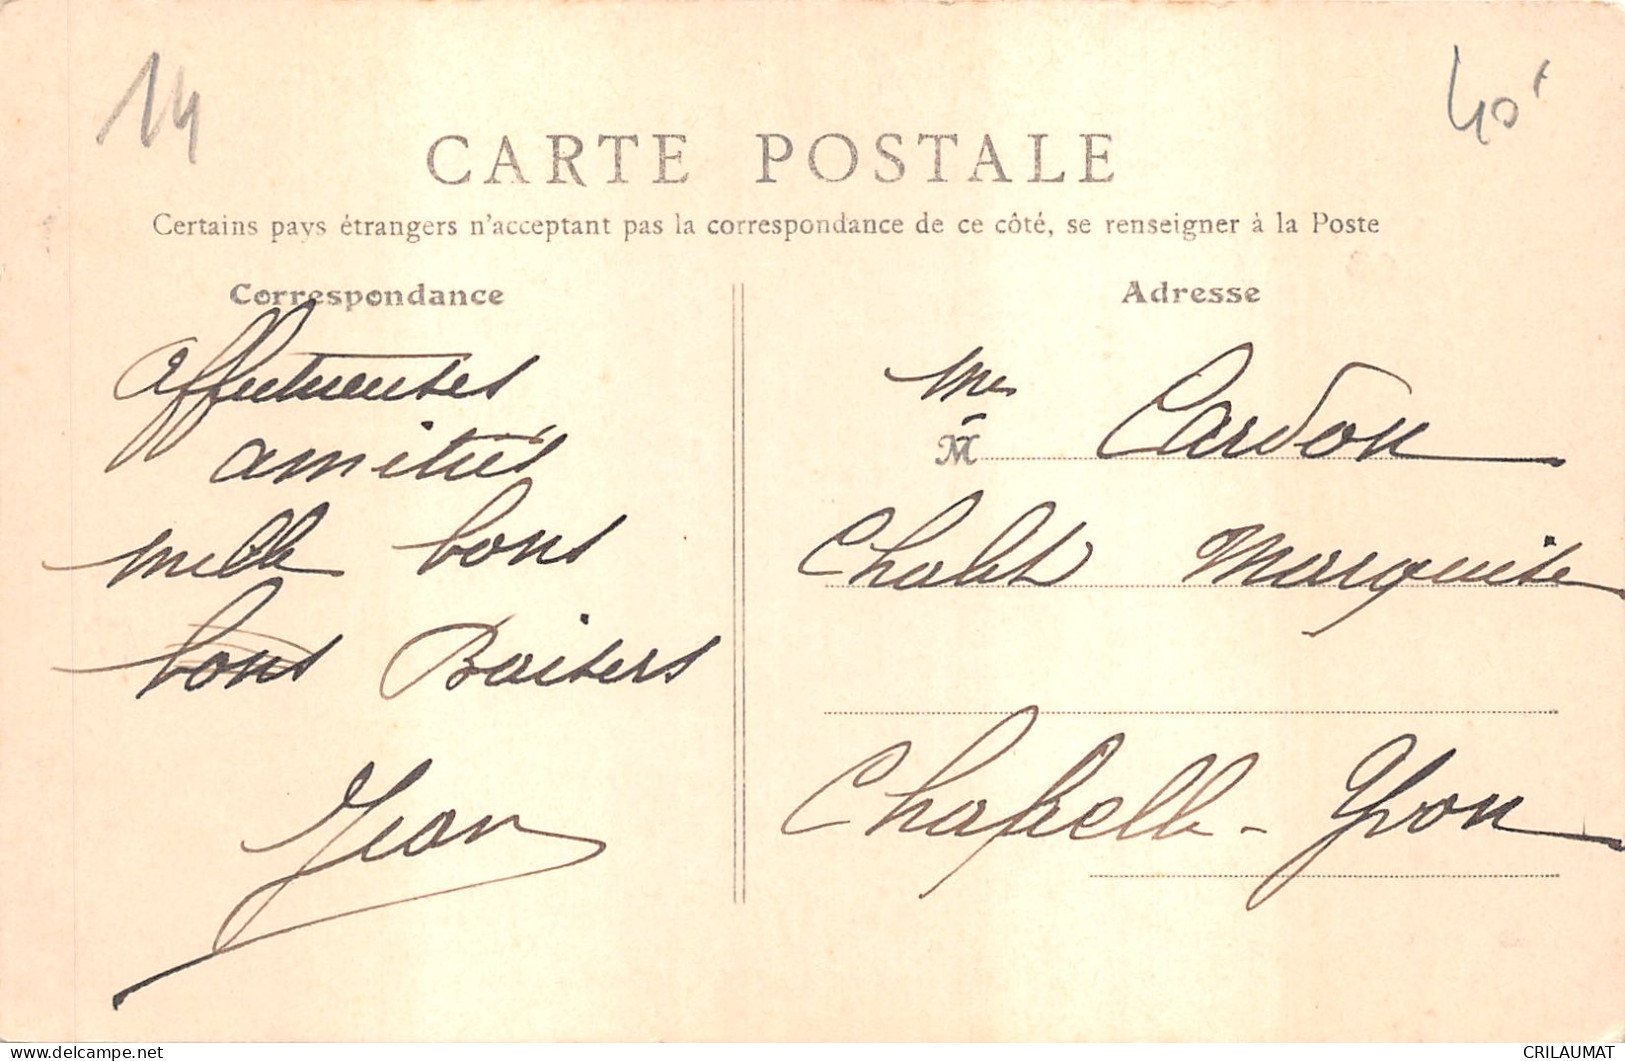 14
40f
CARTE POSTALE
Certains pays étrangers n'acceptant pas la correspondance de ce côté, se renseigner à la Poste
Correspondance
Affectueuses
amitiés
mille bons
bons Baisers
Jean
Adresse
Me Cardon
M
Chalet Marquise
Chapelle-Yvon
delcampe.net
CRILAUMAT